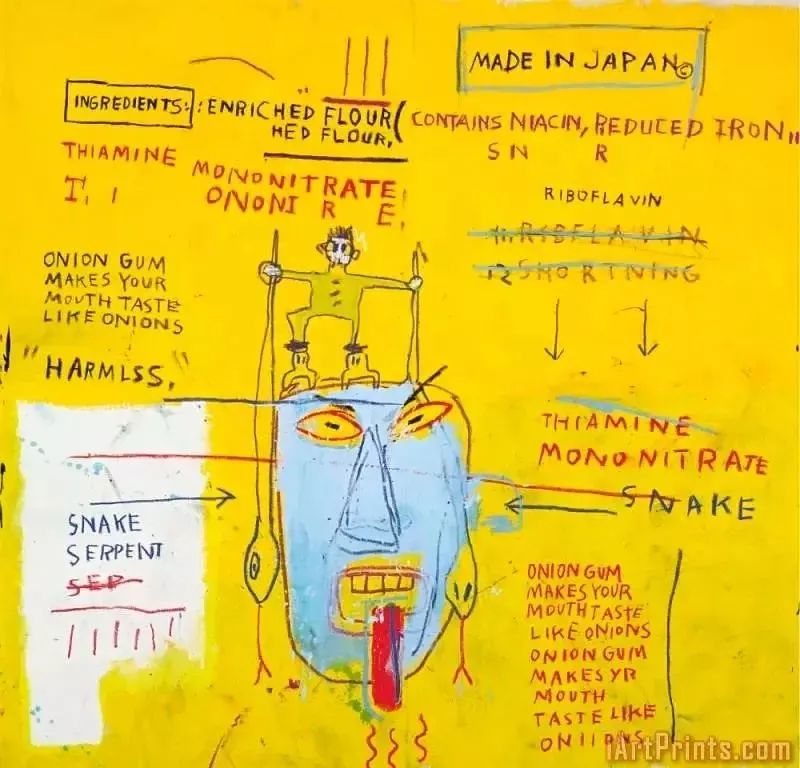 MADE IN JAPAN©
INGREDIENTS: : ENRICHED FLOUR ( CONTAINS NIACIN, REDUCED IRON,,
HED FLOUR,
S N R
THIAMINE MONONITRATE
T. I ONONI R E,
RIBOFLAVIN
RIBFLAVIN
12 SHORTNING
ONION GUM
MAKES YOUR
MOUTH TASTE
LIKE ONIONS
"HARMLSS,
THIAMINE
MONONITRATE
SNAKE
SNAKE
SERPENT
SEP
ONION GUM
MAKES YOUR
MOUTH TASTE
LIKE ONIONS
ONION GUM
MAKES YR
MOUTH
TASTE LIKE
ONIIONS
iArtPrints.com